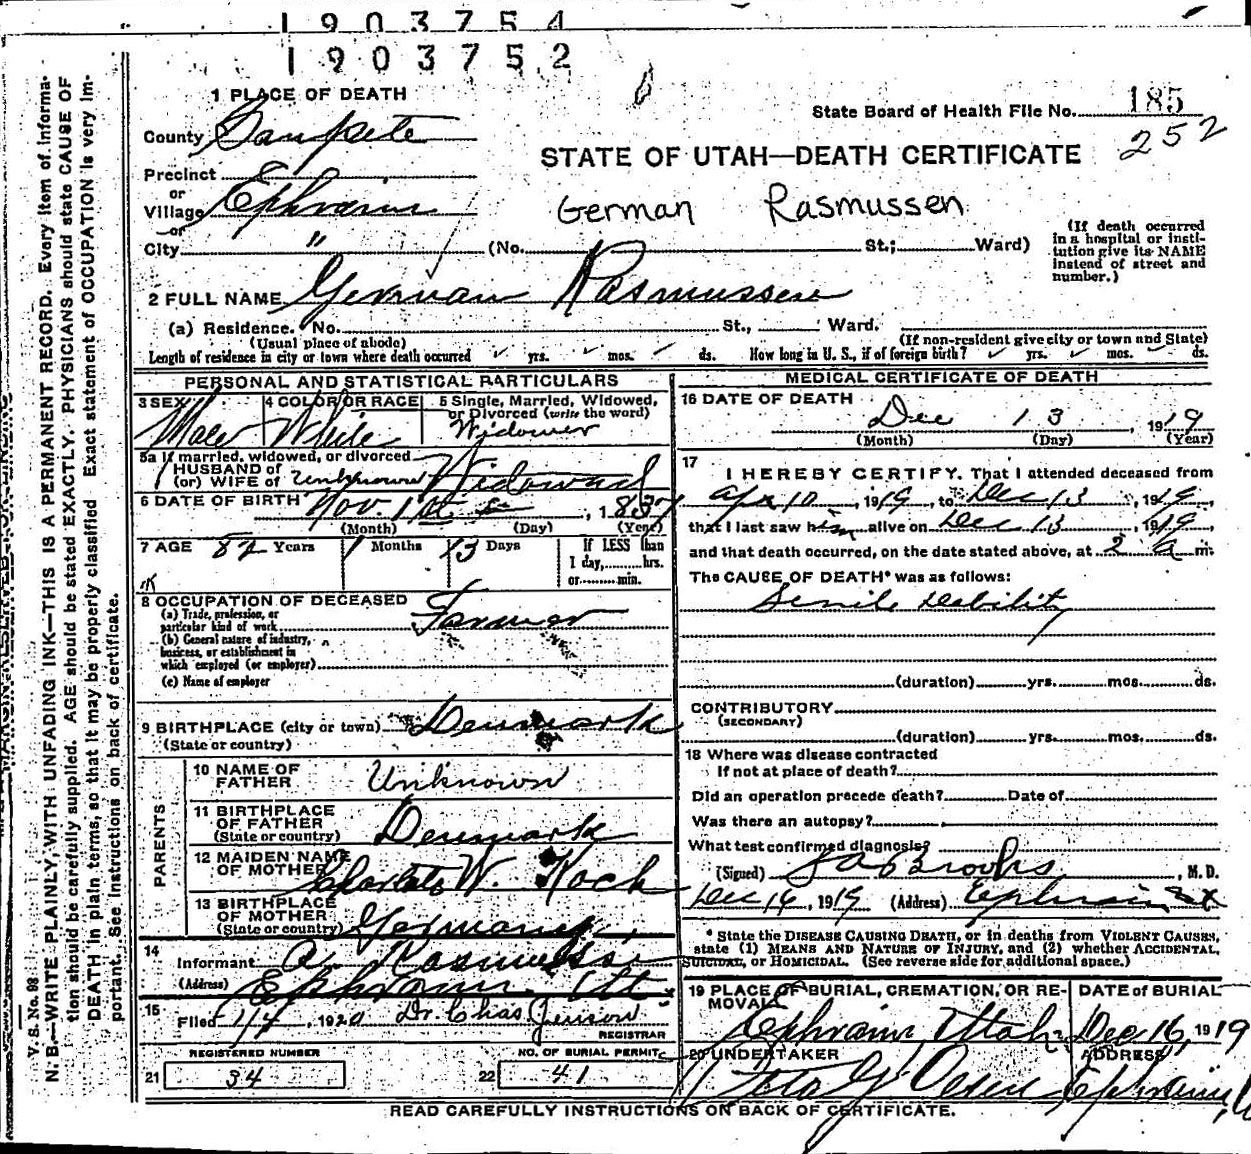 1903754
1903752
1 PLACE OF DEATH
State Board of Health File No. 185
252
County Sanpete
STATE OF UTAH—DEATH CERTIFICATE
Precinct
or
Village Ephraim
German Rasmussen
or
City " (No. St.; Ward)
(If death occurred
in a hospital or insti-
tution give its NAME
instead of street and
number.)
2 FULL NAME German Rasmussen
(a) Residence. No. St., Ward.
(Usual place of abode)
(If non-resident give city or town and State)
Length of residence in city or town where death occurred yrs. mos. ds. How long in U. S., if of foreign birth? yrs. mos. ds.
PERSONAL AND STATISTICAL PARTICULARS
3 SEX Male
4 COLOR OR RACE White
5 Single, Married, Widowed,
or Divorced (write the word)
Widower
5a If married, widowed, or divorced
HUSBAND of
(or) WIFE of unknown Widowed
6 DATE OF BIRTH Nov. 1st, 1837
(Month) (Day) (Year)
7 AGE 82 Years 1 Months 13 Days
If LESS than
1 day, hrs.
or min.
8 OCCUPATION OF DECEASED
(a) Trade, profession, or
particular kind of work Farmer
(b) General nature of industry,
business, or establishment in
which employed (or employer)
(c) Name of employer
9 BIRTHPLACE (city or town) Denmark
(State or country)
PARENTS
10 NAME OF
FATHER Unknown
11 BIRTHPLACE
OF FATHER
(State or country) Denmark
12 MAIDEN NAME
OF MOTHER W. Koch
13 BIRTHPLACE
OF MOTHER
(State or country) Germany
14
Informant Rasmussen
(Address) Ephraim Ut.
15
Filed 1/4, 1920 Dr. Chas Jenson
REGISTRAR
REGISTERED NUMBER
21 34
NO. OF BURIAL PERMIT
22 41
MEDICAL CERTIFICATE OF DEATH
16 DATE OF DEATH
Dec 13, 1919
(Month) (Day) (Year)
17
I HEREBY CERTIFY. That I attended deceased from
Apr 10, 1919, to Dec 13, 1919,
that I last saw him alive on Dec 13, 1919
and that death occurred, on the date stated above, at 2 a m.
The CAUSE OF DEATH* was as follows:
Senile debility
(duration) yrs. mos. ds.
CONTRIBUTORY
(SECONDARY)
(duration) yrs. mos. ds.
18 Where was disease contracted
If not at place of death?
Did an operation precede death? Date of
Was there an autopsy?
What test confirmed diagnosis?
(Signed) Brooks, M. D.
Dec 14, 1919 (Address) Ephraim
* State the DISEASE CAUSING DEATH, or in deaths from VIOLENT CAUSES,
state (1) MEANS AND NATURE OF INJURY, and (2) whether ACCIDENTAL,
SUICIDAL, or HOMICIDAL. (See reverse side for additional space.)
19 PLACE OF BURIAL, CREMATION, OR RE-
MOVAL
Ephraim Utah
DATE of BURIAL
Dec 16, 1919
20 UNDERTAKER
Olsen
ADDRESS
Ephraim, U
READ CAREFULLY INSTRUCTIONS ON BACK OF CERTIFICATE.
V. S. No. 98
N. B.—WRITE PLAINLY, WITH UNFADING INK—THIS IS A PERMANENT RECORD. Every item of informa-
tion should be carefully supplied. AGE should be stated EXACTLY. PHYSICIANS should state CAUSE OF
DEATH in plain terms, so that it may be properly classified. Exact statement of OCCUPATION is very im-
portant. See instructions on back of certificate.